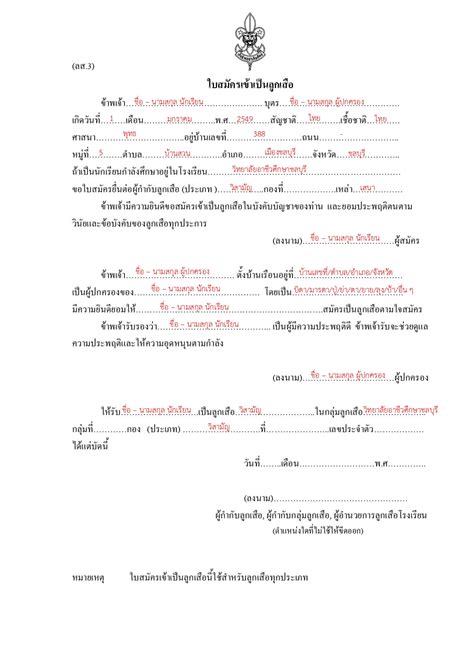 (ลส.3)
ใบสมัครเข้าเป็นลูกเสือ
ข้าพเจ้า....ชื่อ – นามสกุล นักเรียน..............................บุตร....ชื่อ – นามสกุล ผู้ปกครอง..............
เกิดวันที่...1....เดือน..........มกราคม........พ.ศ...2549.....สัญชาติ...ไทย......เชื้อชาติ...ไทย.....
ศาสนา..........พุทธ................อยู่บ้านเลขที่...........388..............ถนน..............-...................
หมู่ที่....5......ตำบล........บ้านสวน..........อำเภอ........เมืองชลบุรี.......จังหวัด.......ชลบุรี............
ถ้าเป็นนักเรียนกำลังศึกษาอยู่ในโรงเรียน..............วิทยาลัยอาชีวศึกษาชลบุรี..............................
ขอใบสมัครยื่นต่อผู้กำกับลูกเสือ (ประเภท )......วิสามัญ......กองที่....................เหล่า....เสนา...........
ข้าพเจ้ามีความยินดีขอสมัครเข้าเป็นลูกเสือในบังคับบัญชาของท่าน และยอมประพฤติตนตาม
วินัยและข้อบังคับของลูกเสือทุกประการ
(ลงนาม)......ชื่อ – นามสกุล นักเรียน......ผู้สมัคร
ข้าพเจ้า......ชื่อ – นามสกุล ผู้ปกครอง.......... ตั้งบ้านเรือนอยู่ที่...บ้านเลขที่/ตำบล/อำเภอ/จังหวัด......
เป็นผู้ปกครองของ.........ชื่อ – นามสกุล นักเรียน............... โดยเป็น.บิดา/มารดา/ปู่/ย่า/ตา/ยาย/ลุง/ป้า/อื่น ๆ
มีความยินดียอมให้...........ชื่อ – นามสกุล นักเรียน..............................สมัครเป็นลูกเสือตามใจสมัคร
ข้าพเจ้ารับรองว่า.....ชื่อ – นามสกุล นักเรียน............ เป็นผู้มีความประพฤติดี ข้าพเจ้ารับจะช่วยดูแล
ความประพฤติและให้ความอุดหนุนตามกำลัง
(ลงนาม)....ชื่อ – นามสกุล ผู้ปกครอง.....ผู้ปกครอง
ให้รับ..ชื่อ – นามสกุล นักเรียน....เป็นลูกเสือ...วิสามัญ........................ในกลุ่มลูกเสือวิทยาลัยอาชีวศึกษาชลบุรี
กลุ่มที่..............กอง (ประเภท) ...........วิสามัญ................ที่..........................เลขประจำตัว....................
ได้แต่บัดนี้
วันที่........เดือน..........................พ.ศ..............
(ลงนาม)................................................
ผู้กำกับลูกเสือ, ผู้กำกับกลุ่มลูกเสือ, ผู้อำนวยการลูกเสือโรงเรียน
(ตำแหน่งใดที่ไม่ใช้ให้ขีดออก)
หมายเหตุ ใบสมัครเข้าเป็นลูกเสือนี้ใช้สำหรับลูกเสือทุกประเภท